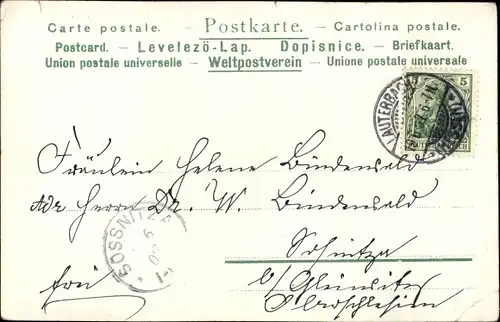 Carte postale. – Postkarte. – Cartolina postale.
Postcard. – Levelezö-Lap. Dopisnice. – Briefkaart.
Union postale universelle – Weltpostverein – Unione postale universale
5 5
LAUTERBACH
Fräulein Helene Bindewald
Adr Herrn Dr. W. Bindewald
Sosnitza
frei
b/Gleiwitz
Oberschlesien
SOSSNITZA